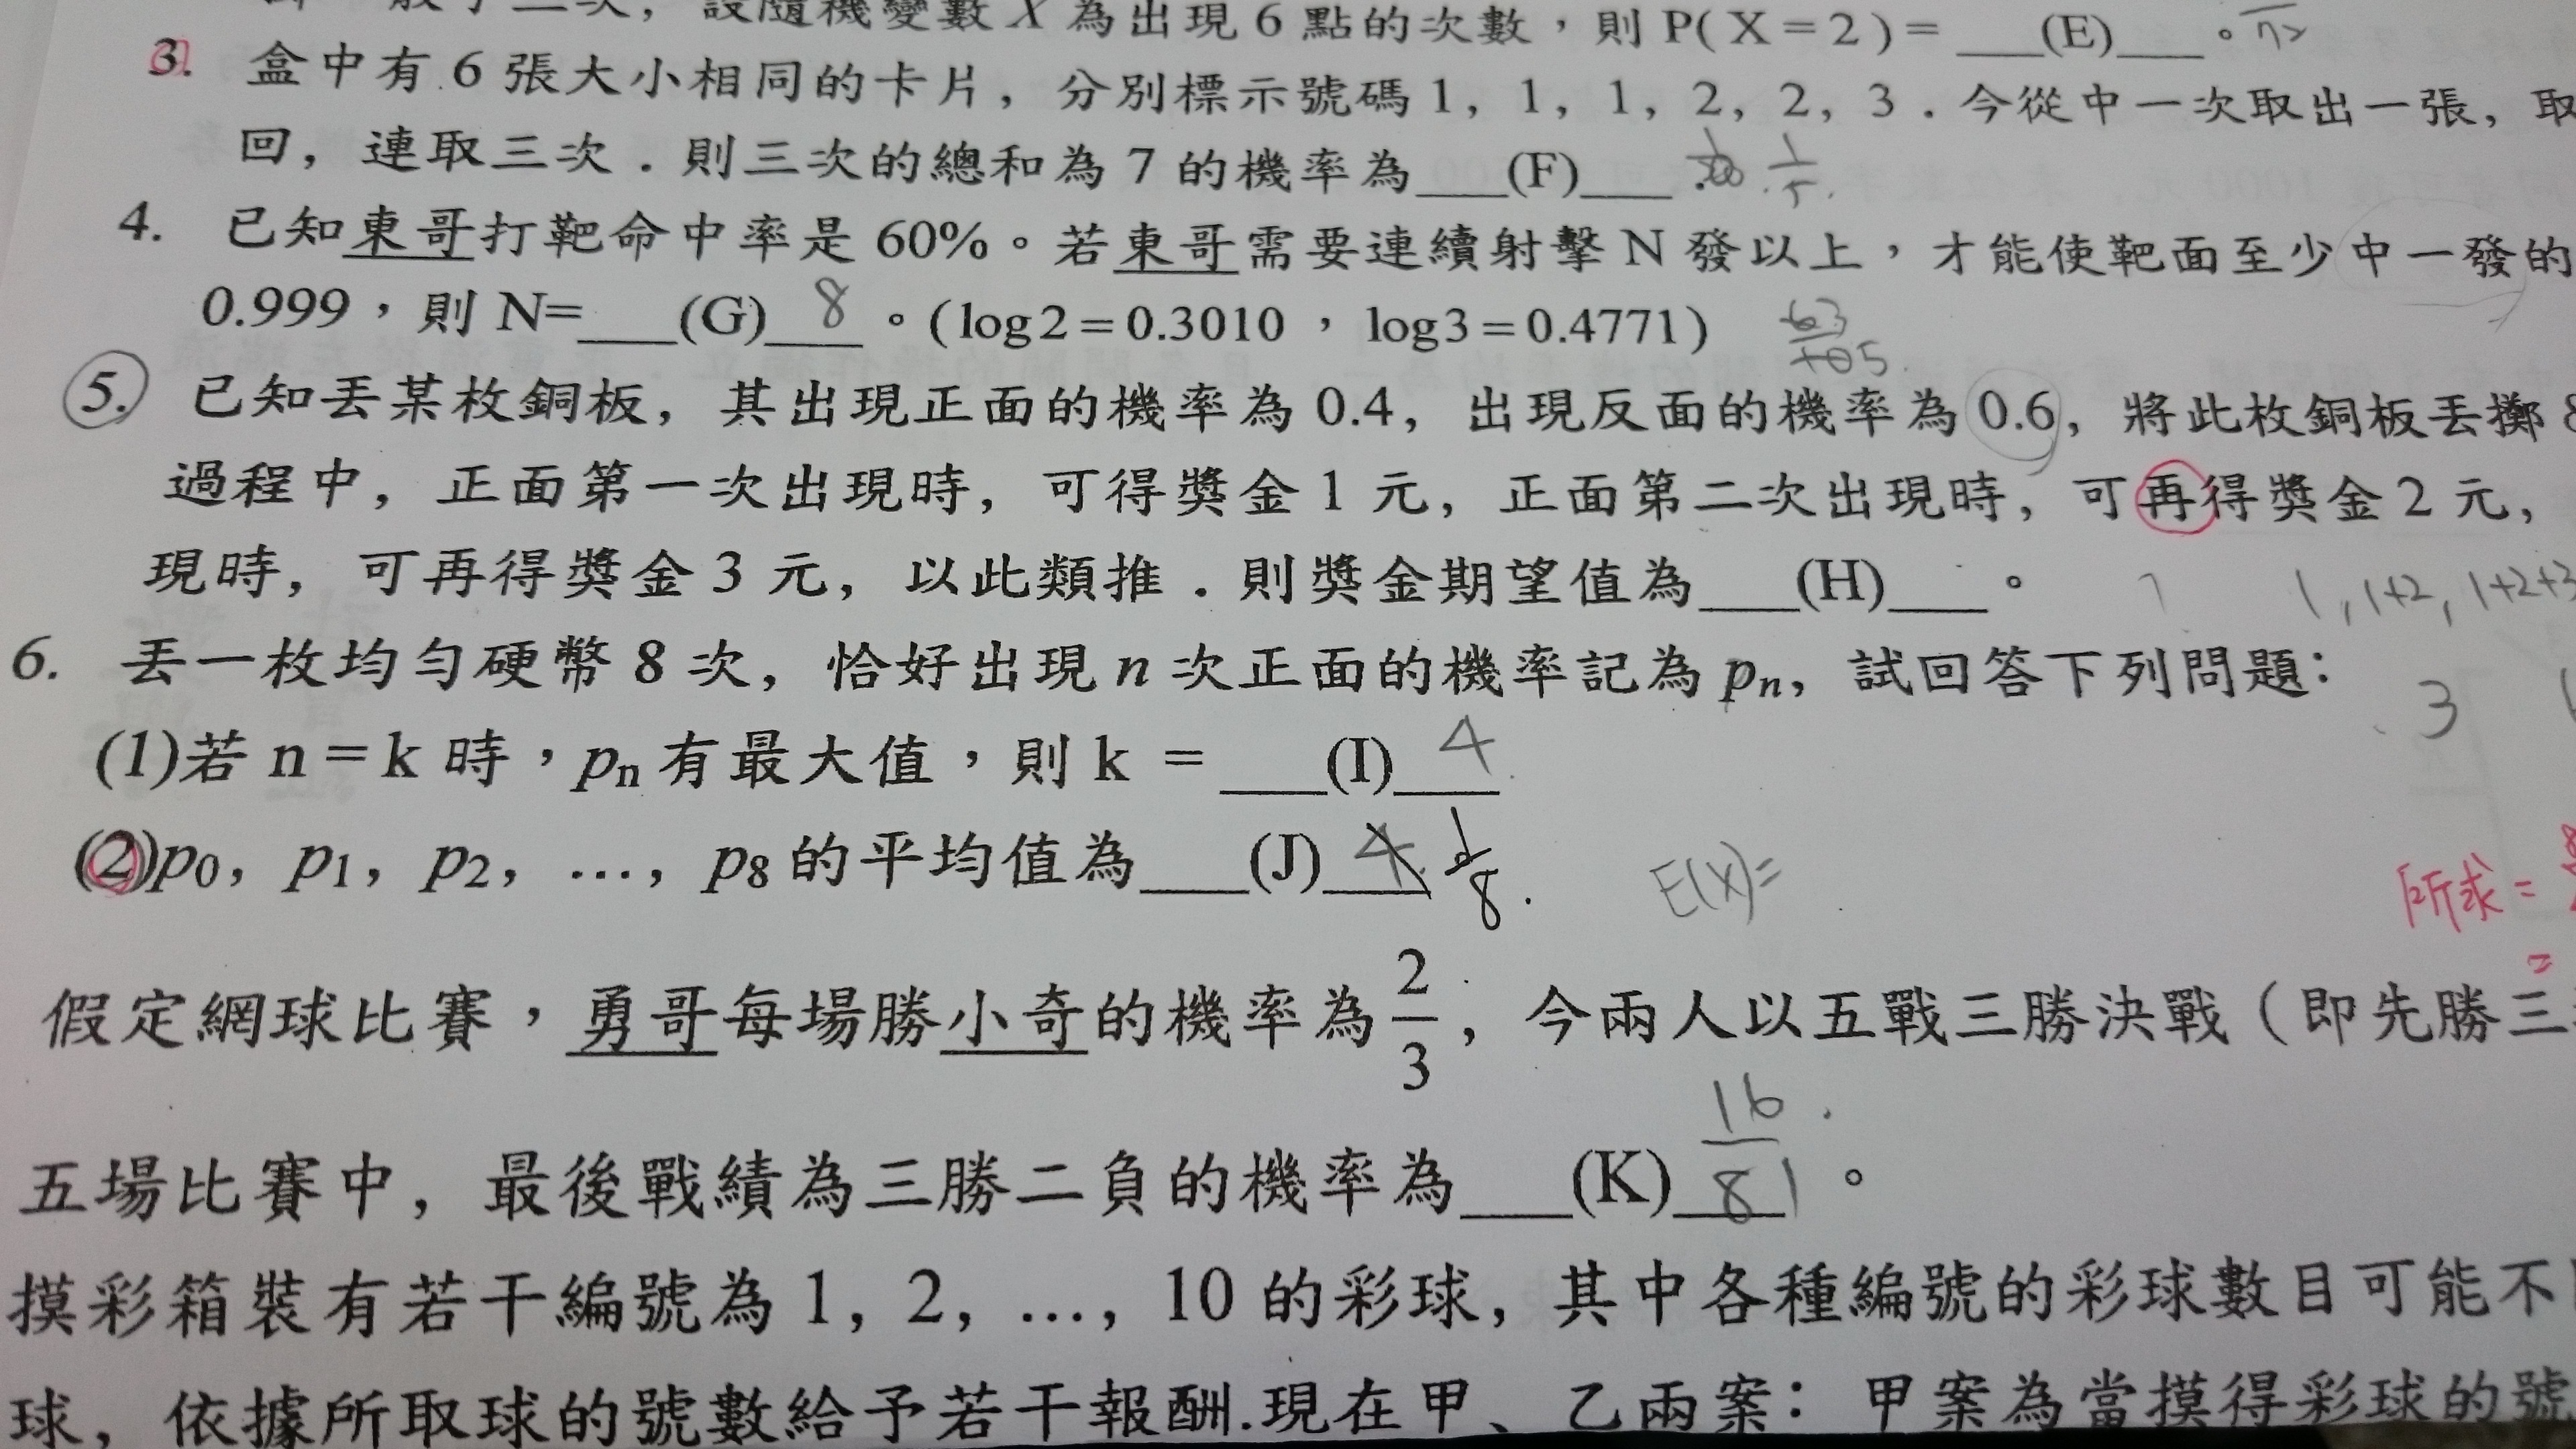 次，設隨機變數 X 為出現 6 點的次數，則 P( X = 2 ) = ___(E)___。
3. 盒中有 6 張大小相同的卡片，分別標示號碼 1，1，1，2，2，3．今從中一次取出一張，取
回，連取三次．則三次的總和為 7 的機率為___(F)___． 1/5
4. 已知東哥打靶命中率是 60%。若東哥需要連續射擊 N 發以上，才能使靶面至少中一發的
0.999，則 N=___(G)___ 8 。( log2 = 0.3010 ， log3 = 0.4771 )
5. 已知丟某枚銅板，其出現正面的機率為 0.4，出現反面的機率為 0.6，將此枚銅板丟擲 8
過程中，正面第一次出現時，可得獎金 1 元，正面第二次出現時，可再得獎金 2 元，
現時，可再得獎金 3 元，以此類推．則獎金期望值為___(H)___。
1, 1+2, 1+2+3
6. 丟一枚均勻硬幣 8 次，恰好出現 n 次正面的機率記為 pn，試回答下列問題：
3
(1)若 n = k 時，pn 有最大值，則 k = ___(I)___ 4
(2)p0，p1，p2，…，p8 的平均值為___(J)___ 4
E(X)=
所求 =
假定網球比賽，勇哥每場勝小奇的機率為 2/3，今兩人以五戰三勝決戰（即先勝三
五場比賽中，最後戰績為三勝二負的機率為___(K)___ 16/81 。
摸彩箱裝有若干編號為 1，2，…，10 的彩球，其中各種編號的彩球數目可能不
球，依據所取球的號數給予若干報酬.現在甲、乙兩案：甲案為當摸得彩球的號